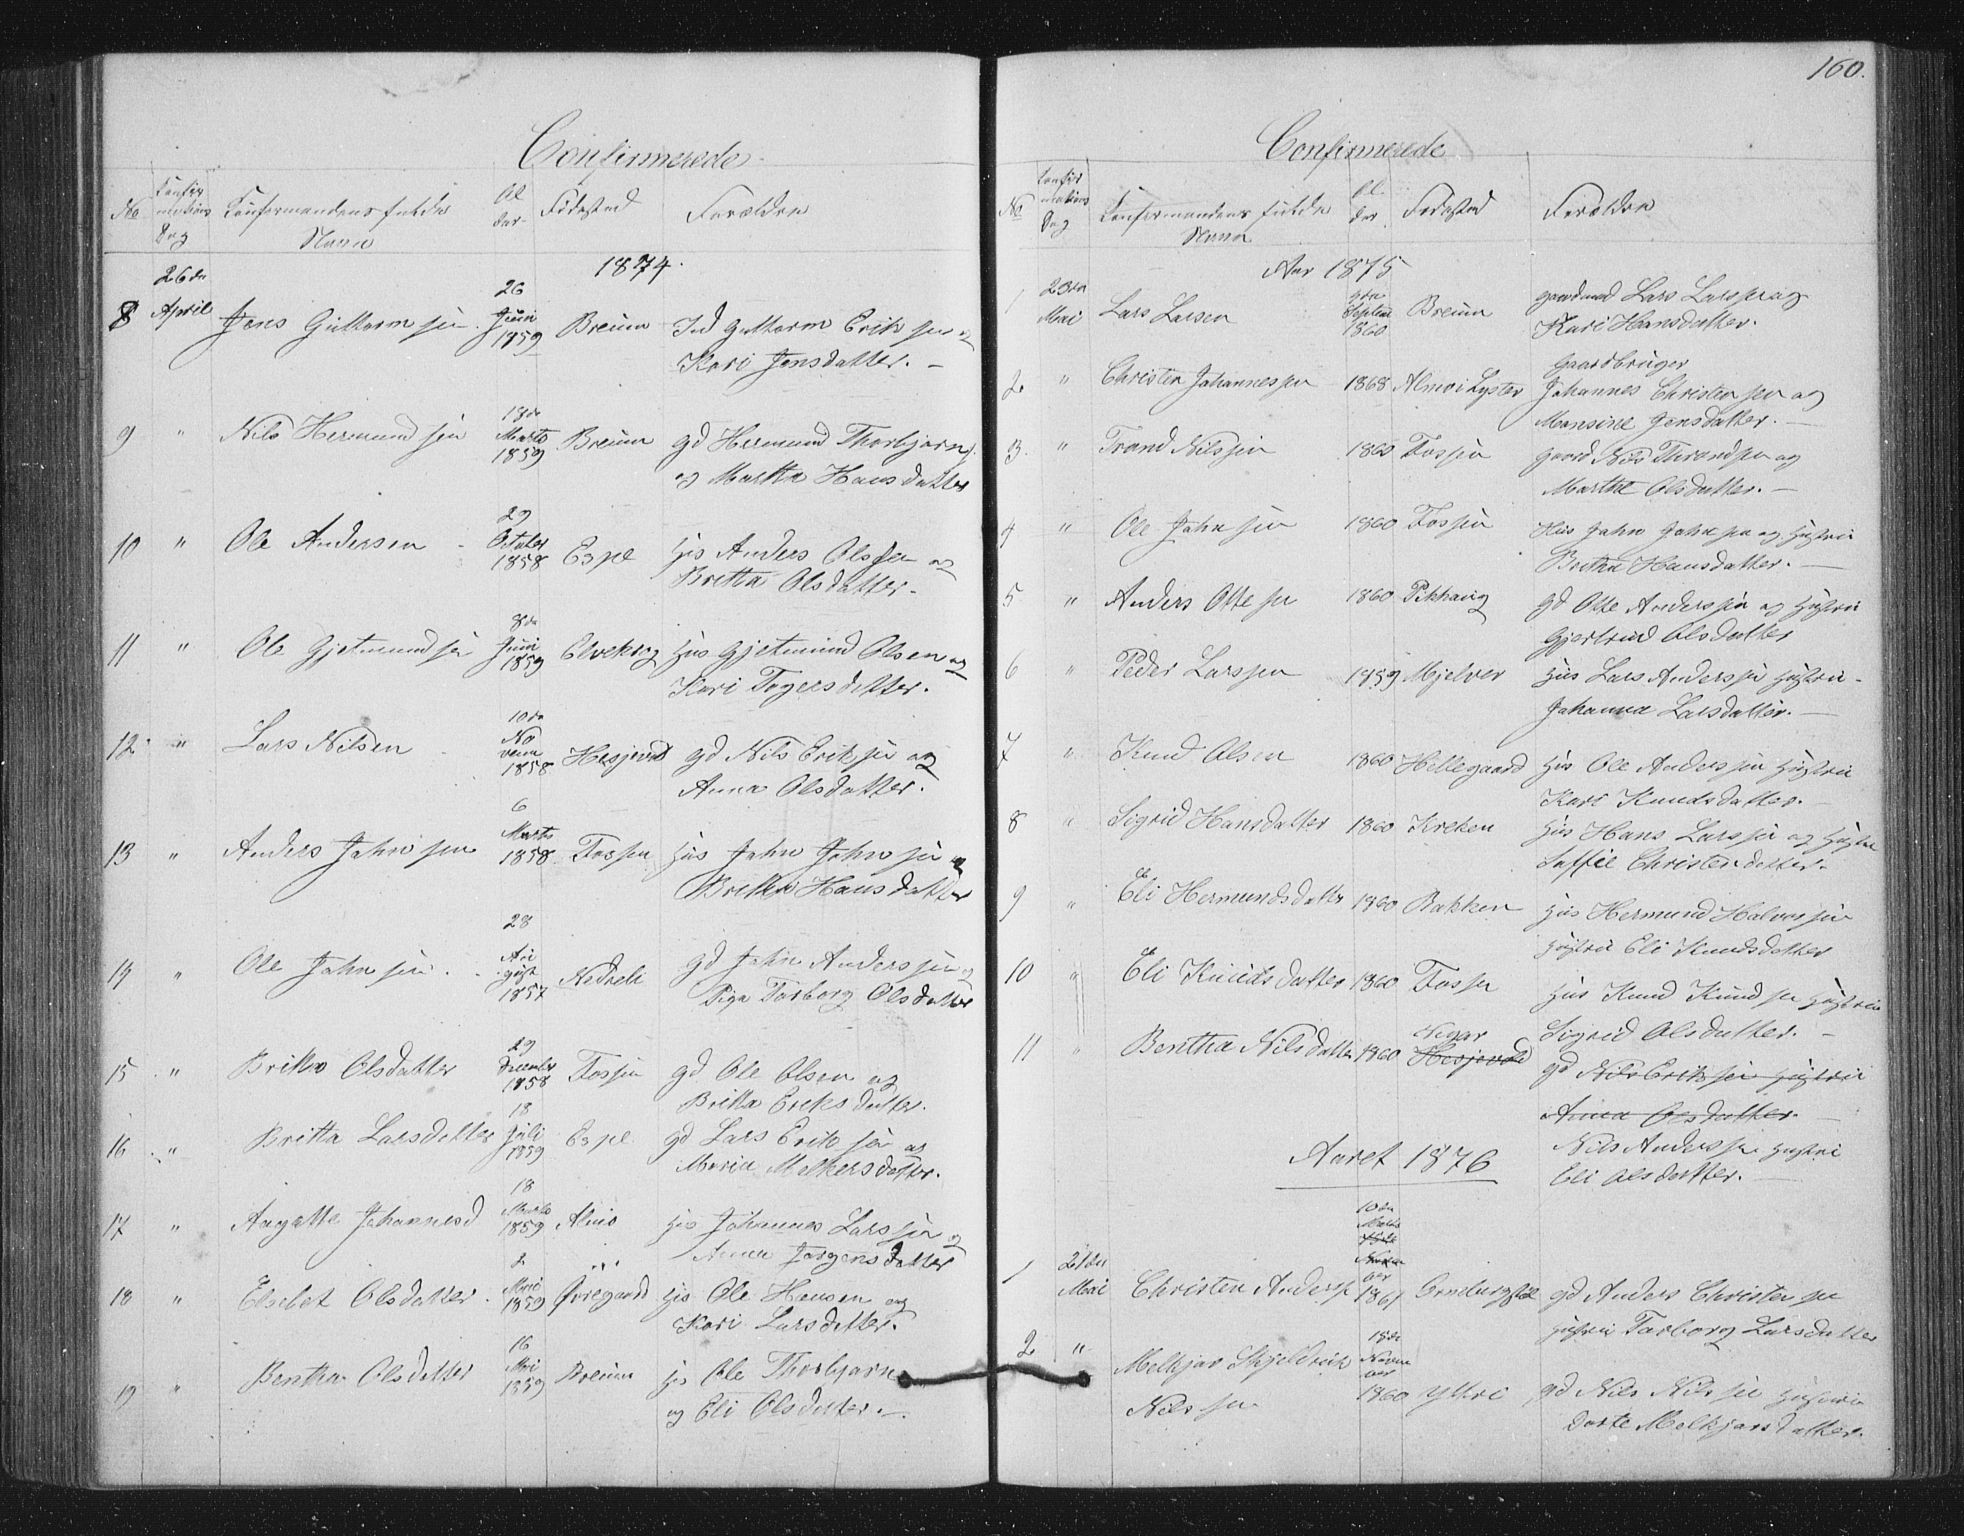 Confirmerede
No
Confir
mations
Dag
Konfirmandens fulde
Navn
Al
der
Fødested
Forældre
1874.
26de
8 April Jens Guttormsen 26 Juni 1859 Breum Ind Guttorm Eriksen og
Kari Jensdatter. –
9 " Nils Hermundsen 18de Marts 1859 Breum gd Hermund Thorbjørns.
og Martha Hansdatter
10 " Ole Andersen 29 Octuber 1858 Espe Hus Anders Olssen og
Britha Olsdatter –
11 " Ole Gjetmundsen 8de Juni 1859 Hus Gjetmund Olsen og
Kari Togersdatter.
12. " Lars Nilsen 10de No vem 1858 Hesjevol gd Nils Eriksen og
Anna Olsdatter.
13 " Anders Johnsen 6 Marts 1858 Fossen Hus John Johnsen og
Britha Hansdatter
14 " Ole Johnsen 28 Au gust 1857 Nedreli gd John Anderssen og
Torborg Olsdatter
15 " Britha Olsdatter 29 December 1858 Fossen gd Ole Olsen og
Britha Eriksdatter.
16 " Britta Larsdatter 18 Juli 1859 Espe gd Lars Eriksen og
Maria Melkersdatter.
17 " Aagatte Johannesd 18 Marts 1859 Almo Hus Johannes Larssen og
Anna Jørgensdatter
18 " Elsebet Olsdatter 2 Mai 1859 Øvregaard Hus Ole Hansen og
Kari Larsdatter.
19 " Bentha Olsdatter 16 Mai 1859 Breum Hus Ole Thorbjørns
og Eli Olsdatter. –
160.
Confirmerede
No
Confir
mations
Dag
Konfirmandens fulde
Navn
Al
der
Fødested
Forældre
Aar 1875
1 23de Mai Lars Larsen 9de Septem 1860 Breum gaardmand Lars Larssen og
Kari Hansdatter.
2 " Christen Johannessen 1868 Almo i Lyster Gaardbruger
Johannes Christensen og
Mansine Jensdatter. –
3. " Trond Nilssen 1860 Fossen gaard Nils Throndsen og
Marthe Olsdatter. –
4 " Ole Johnsen 1860 Fossen Hus John Johnsen og Hustru
Britha Hansdatter. –
5 " Anders Ottesen 1860 Pikhaug gd Otte Anderssen og Hustru
Gjertrud Olsdatter
6 " Peder Larssen 1859 Mjelver Hus Lars Anderssen Hustru
Johanna Larsdatter. –
7 " Knud Olsen 1860 Hellegaard Hus Ole Anderssen Hustru
Kari Knudsdatter. –
8 " Sigrid Hansdatter 1860 Kreken Hus Hans Larssen og Hustru
Soffie Christensdatter.
9 " Eli Hermundsdatter 1860 Bakken Hus Hermund Halvorsen
Hustru Eli Knudsdatter
10 " Eli Knudsdatter 1860 Fossen Hus Knud Knudsen Hustru
Sigrid Olsdatter. –
11 " Bentha Nilsdatter 1860 Hesjevold gd Nils Eriksen Hustru
Anna Olsdatter. –
Nils Anderssen Hustru
Eli Olsdatter. –
Aaret 1876
1 21de Mai Christen Anders. 10de Marts 1861 gd Anders Christensen
Hustru Torborg Larsdatter
2 " Melkjor Skjeldrik 18de Novem ber
Nilssen 1860 Ytri gd Nils Nilssen Hustru
Dorte Melkjorsdatter.